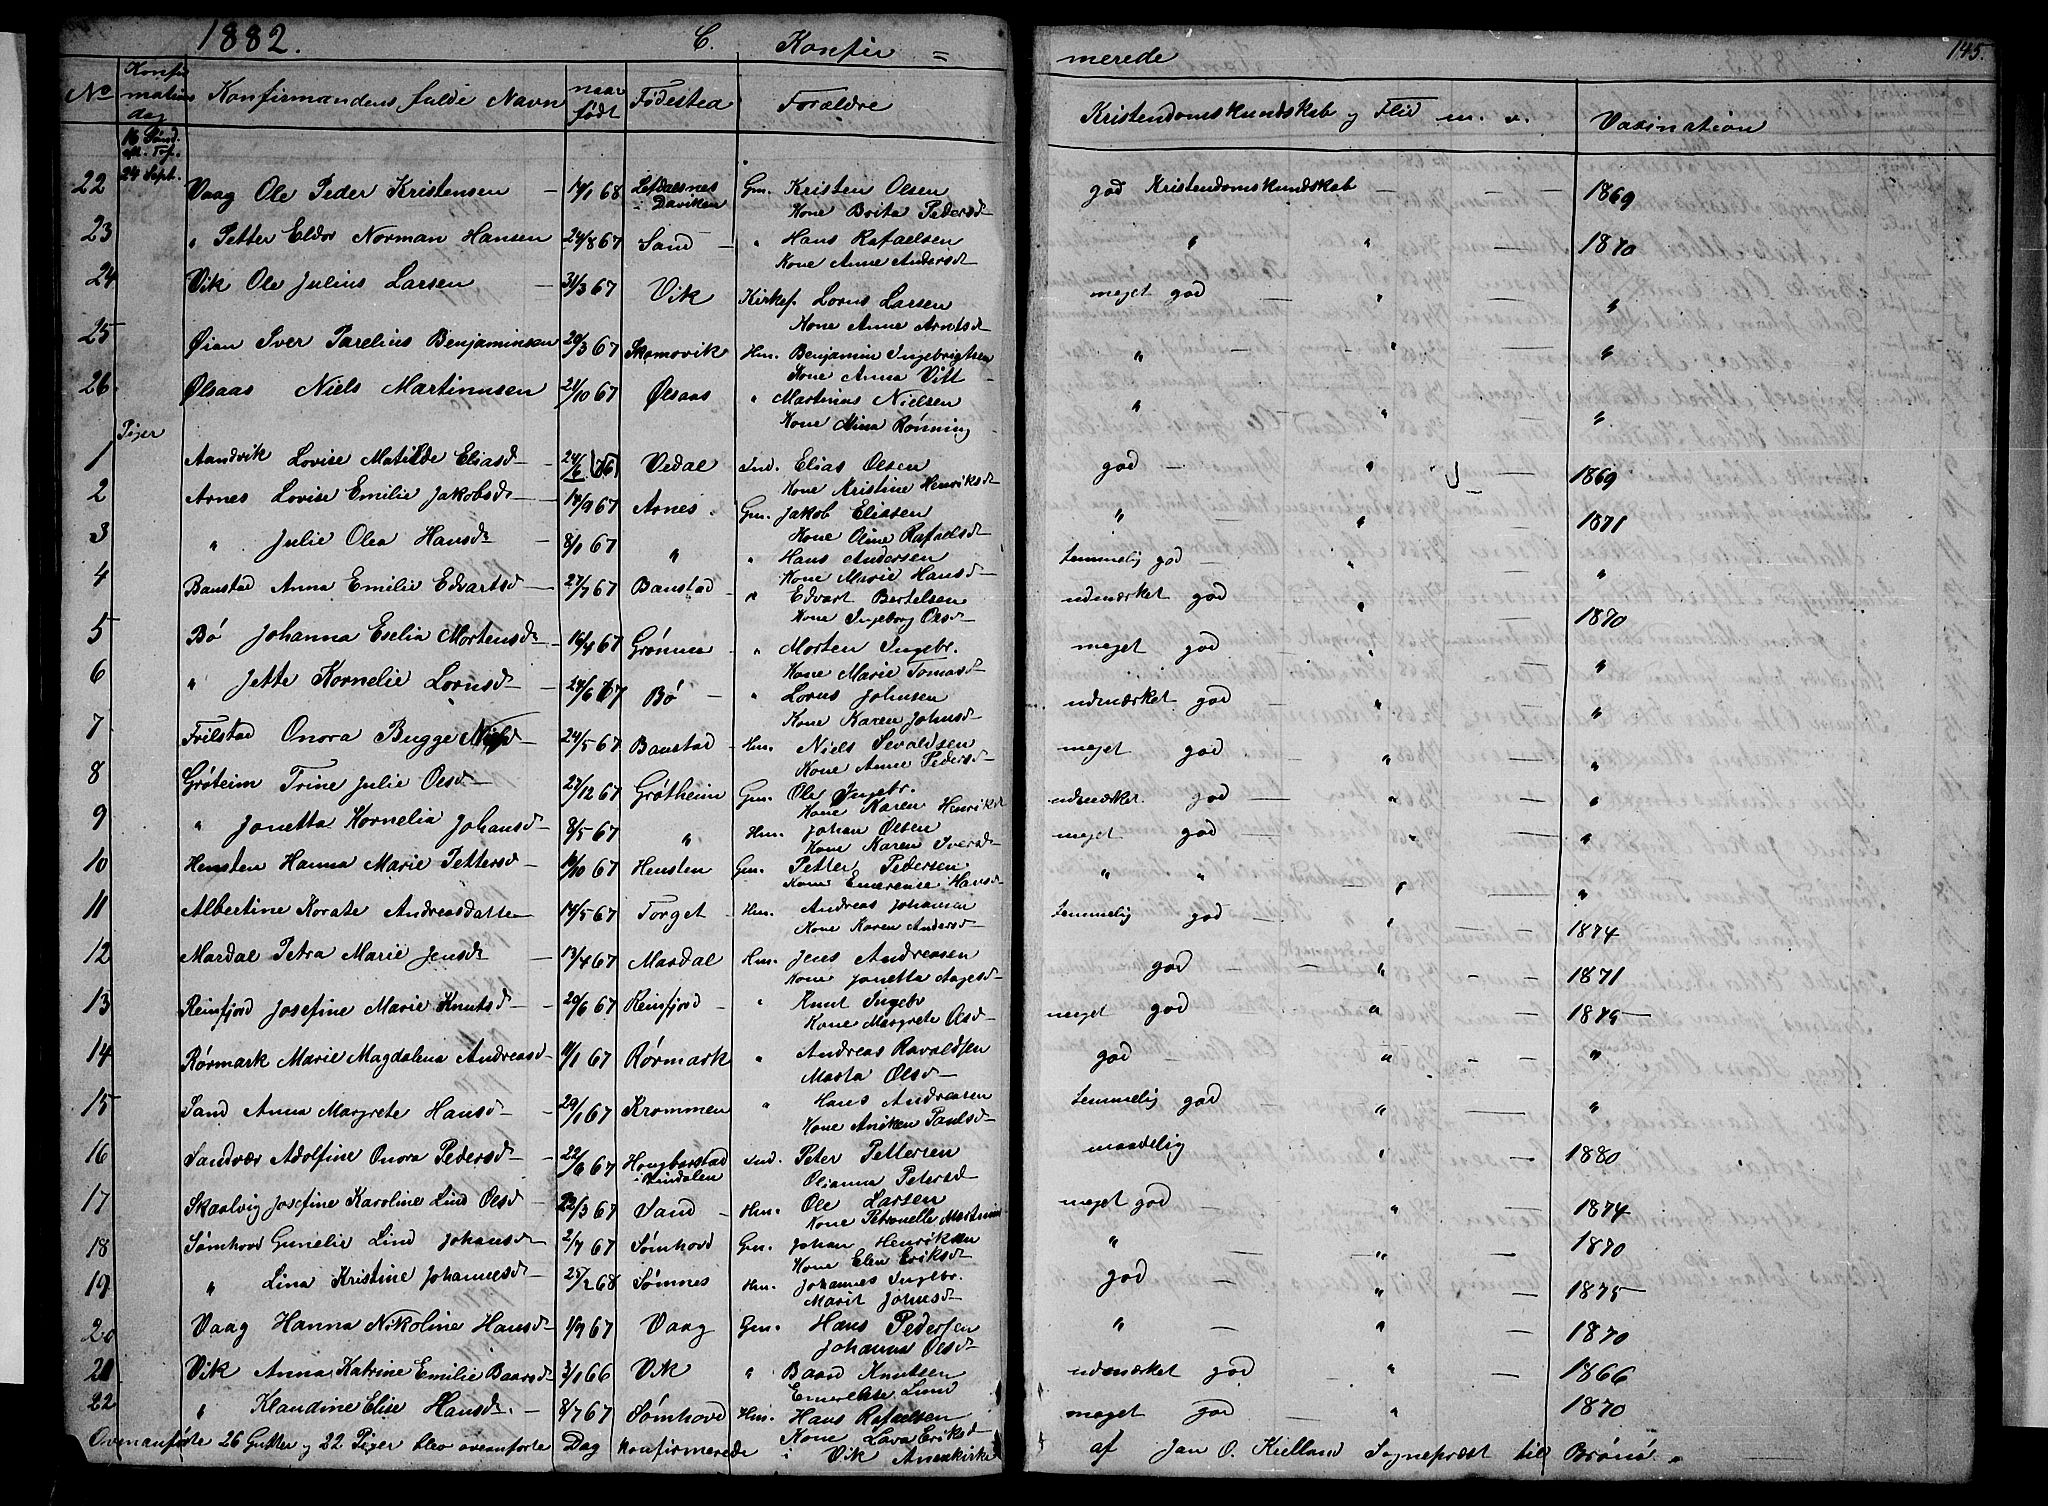 1882. C. Konfir = merede 145.
No Konfirmations dag Konfirmandens fulde Navn naar født Fødested Forældre Kristendomskundskab og Flid m. v. Vaxination
16 Sønd. eft. Tref.
24 Sept.
22 Vaag Ole Peder Kristensen — 14/1 68 i Daviken Gm. Kristen Olsen god Kristendomskundskab — — 1869
Kone Brita Pedersd
23 " Petter Eldor Norman Hansen 24/8 67 Sand — " Hans Rafaelsen " " — 1870
Kone Anne Andersd
24 Vik Ole Julius Larsen — 31/3 67 Vik Kirkes. Lorns Larsen meget god — " — "
Kone Anne Arntsd
25 Øien Iver Parelius Benjaminsen 29/3 67 Skomovik Hm. Benjamin Ingebrigtsen " — " — "
Kone Anna Vitt
26. Ølsaas Niels Martinusen 21/10 67 Ølsaas " Martinus Nielsen " — " — "
Kone Mina Rønning
Piger
1 Aandvik Lovise Matilde Eliasd — 24/6 (76) Vedal Ind. Elias Olsen god — " — 1869
Kone Kristine Henriksd
2 Arnes Lovise Emilie Jakobsd — 14/9 67 Arnes. Gm. Jakob Eliasen " — " — 1871
Kone Oline Rafaelsd
3 " Julie Olea Hansd — 8/1 67 " " Hans Andersen temmelig god — " — "
Kone Marie Hansd
4 Banstad Anna Emilie Edvartsd — 27/7 67 Banstad — " Edvart Bertelsen udmærket god " — 1870
Kone Ingeborg Olsd
5 Bø Johanna Eselia Mortensd — 16/4 67 Grønme — " Morten Ingebr. meget god " — "
Kone Marie Tomasd
6 " Jette Kornelie Lornsd — 24/6 67 Bø — " Lorns Johnsen udmærket god " — "
Kone Karen Johnsd
7 Frilstad Onora Bugge Nilsd — 24/5 67 Banstad — Hm. Niels Sevaldsen meget god " — "
Kone Anne Pedersd
8 Grøteim Trine Julie Olsd — 27/12 67 Grøtheim Gm. Ole Ingebr. udmærket god — " — "
Kone Karen Henriksd
9 " Jonetta Kornelia Johansd — 8/5 67 " Hm. Johan Olsen meget god — " — "
Kone Karen Iversd
10 Hensten Hanna Marie Pettersd — 10/10 67 Hensten Gm. Petter Pedersen " " — " — "
Kone Emerense Hansd
11 Albertine Korate Andreasdatter 14/5 67 Torget — Hm. Andreas Johansen temmelig god — " — 1874
Kone Karen Andersd
12 Mardal Petra Marie Jensd 13/4 67 Mardal Hm. Jens Andreasen god — — " — 1871
Kone Jonetta Aagesd
13 Reinfjord Josefine Marie Knutsd — 20/6 67 Reinfjord — " Knut Ingebr meget god — " — 1875
Kone Margrete Olsd
14 Rørmark Marie Magdalena Andreasd 9/1 67 Rørmark " Andreas Ravaldsen god — " — "
Marta Olsd
15 Sand Anna Margrete Hansd — 29/1 67 Krommen " Hans Andreasen temmelig god — " — "
Kone Aniken Paulsd
16 Sandvær Adolfine Onora Pedersd — 22/6 67 i Vindalen Ind. Peter Pettersen maadelig " — 1880
Olianna Petersd
17 Skaalvig Josefine Karoline Lind Olsd 22/3 67 Sand — Hm. Ole Larsen meget god — " — 1874
Kone Petronelle
18 Sømhovd Gunelie Lind Johansd 2/7 67 Sømhovd Gm. Johan Henriksen " — " — 1870
Kone Elen Eriksd
19 " Lina Kristine Johannesd 25/2 68 Sømnes Hm. Johannes Ingebr. god — " — 1875
Marit Johnsd
20 Vaag Hanna Nikoline Hansd 1/9 67 Vaag Gm. Hans Pedersen " — " — 1870
Johanna Olsd
21 Vik Anna Katrine Emilie Baarsd 3/1 66 Vik " Baard Knutsen udmærket god " — 1866
Lund
22 " Klaudine Elise Hansd — 8/7 67 Sømhovd Hm. Hans Rafaelsen meget god — " — 1870
Kone Lava Eriksd
Ovenanførte 26 Gutter og 22 Piger blev ovenanførte Dag konfirmerede i Vik Anexkirke af Jan O. Kielland Sogneprest til Brønø.